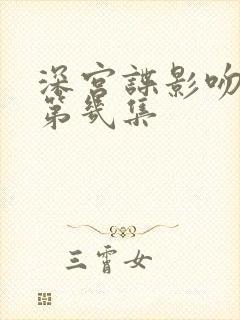 深宫諜影吻
第幾集
三霄女